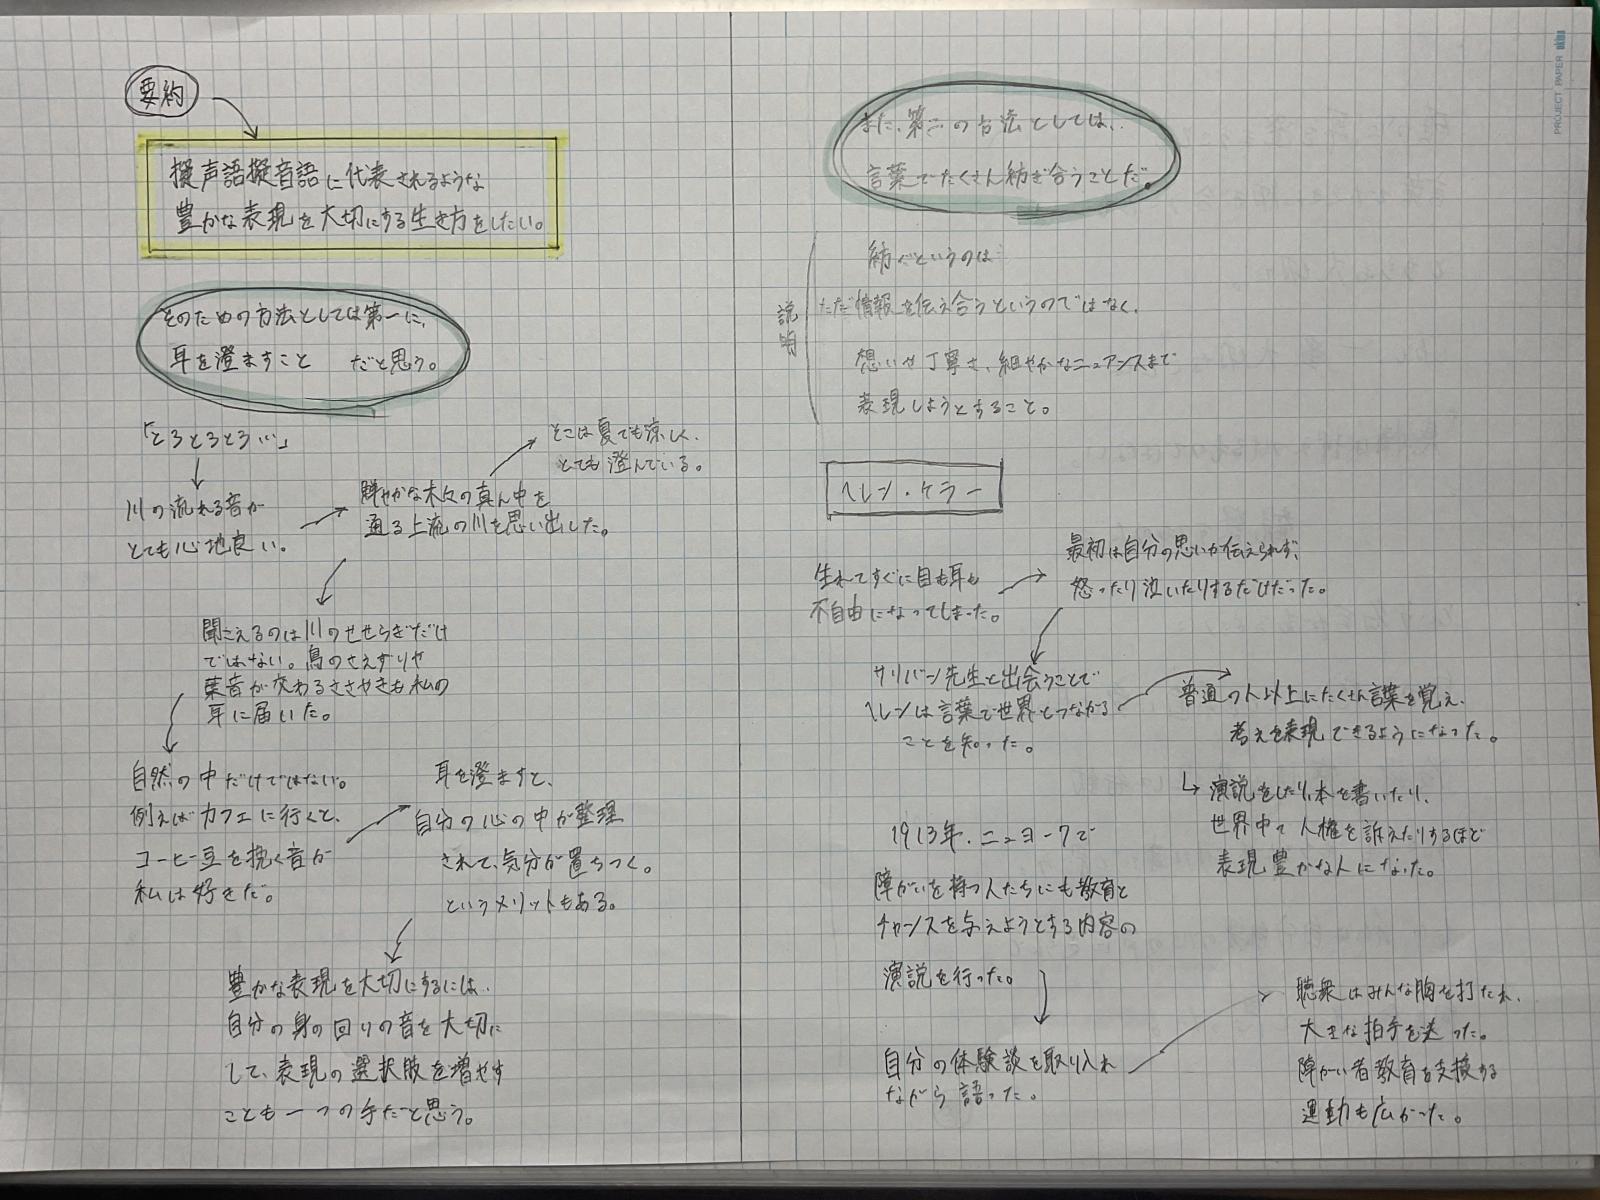 要約
擬声語擬音語に代表されるような
豊かな表現を大切にする生き方をしたい。
そのための方法としては第一に、
耳を澄ますこと だと思う。
「とろとろとろ…」
川の流れる音が
とても心地良い。
鮮やかな木々の真ん中を
通る上流の川を思い出した。
そこは夏でも涼しく、
とても澄んでいる。
聞こえるのは川のせせらぎだけ
ではない。鳥のさえずりや
葉音が交わるささやきも私の
耳に届いた。
自然の中だけではない。
例えばカフェに行くと、
コーヒー豆を挽く音が
私は好きだ。
耳を澄ますと、
自分の心の中が整理
されて、気分が置ちつく。
というメリットもある。
豊かな表現を大切にするには、
自分の身の回りの音を大切に
して、表現の選択肢を増やす
ことも一つの手だと思う。
PROJECT PAPER
また、第二の方法としては、
言葉でたくさん紡ぎ合うことだ。
説明
紡ぐというのは
ただ情報を伝え合うというのではなく、
想いや丁寧さ、細やかなニュアンスまで
表現しようとすること。
ヘレン・ケラー
生れてすぐに目も耳も
不自由になってしまった。
最初は自分の思いが伝えられず、
怒ったり泣いたりするだけだった。
サリバン先生と出会うことで
ヘレンは言葉で世界とつながる
ことを知った。
普通の人以上にたくさん言葉を覚え、
考えを表現できるようになった。
↳ 演説をしたり、本を書いたり、
世界中で人権を訴えたりするほど
表現豊かな人になった。
1913年、ニューヨークで
障がいを持つ人たちにも教育と
チャンスを与えようとする内容の
演説を行った。
自分の体験談を取り入れ
ながら語った。
聴衆はみんな胸を打たれ、
大きな拍手を送った。
障がい者教育を支援する
運動も広がった。